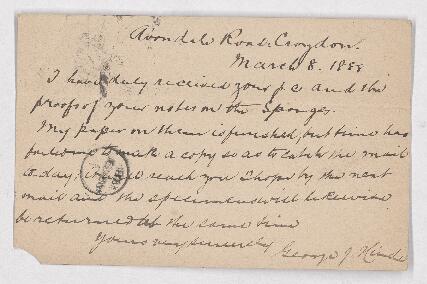 Avondale Road, Croydon.
March 8. 1888
I have duly received your p.c. and the
proofs of your notes on the Sponges.
My paper on them is finished, but time has
failed me to make a copy so as to catch the mail
to-day, reach you I hope by the next
mail and the specimens will likewise
be returned at the same time
Yours very sincerely
George J. Hinde